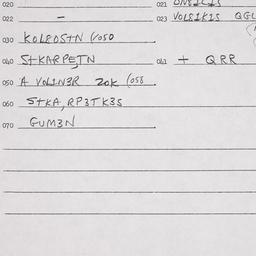 020 021
022 – 023 VOLSIKIS QGL
030 KOLPOSTN (050
040 StKARPETN 041 + QRR
050 A VOLINER ZOK (058
060 STKA, RP3TK3S
070 GUM3N